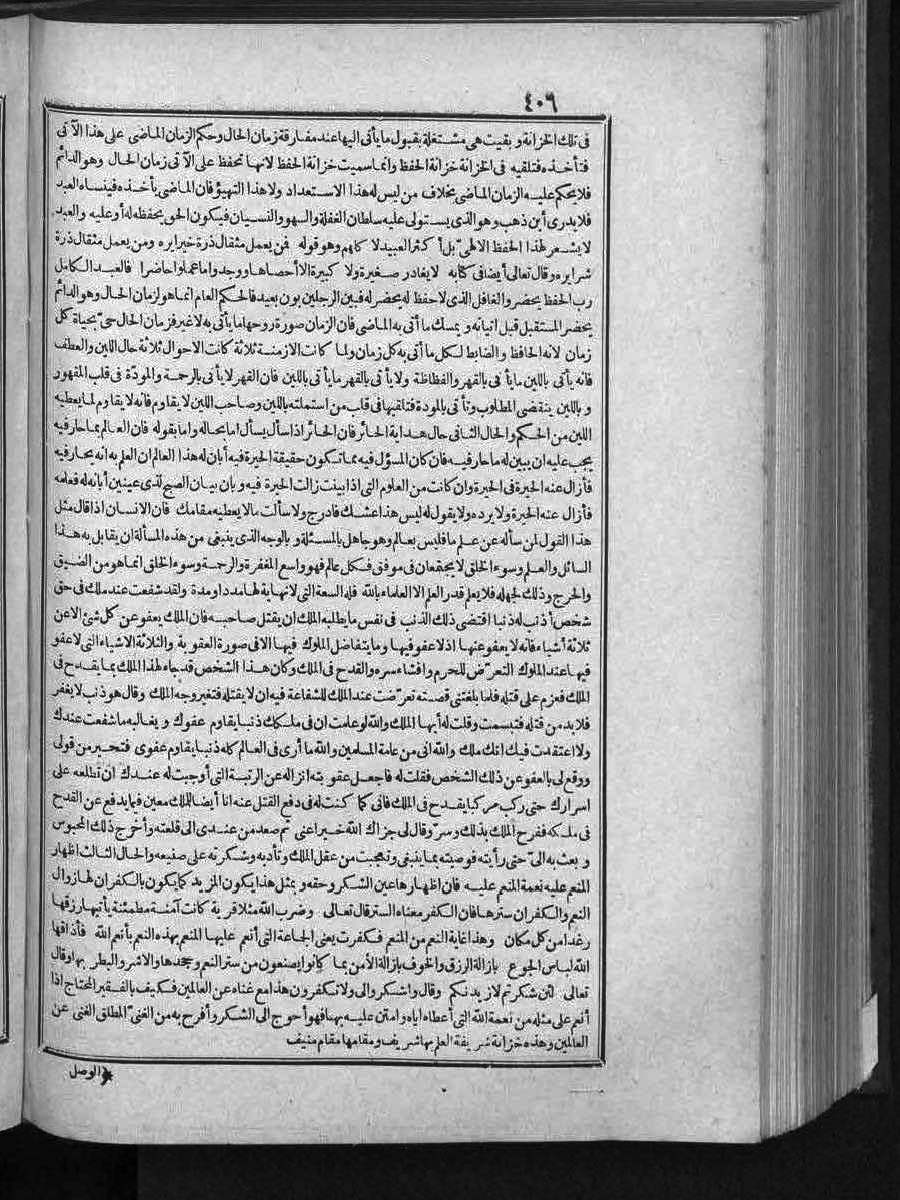 ٤٠٦
فى تلك الخزانة وبقيت هى مشتغلة بقبول ما يأتى اليها عند مفارقة زمان الحال وحكم الزمان الماضى على هذا الآتى
فتأخذه فتلقيه فى الخزانة خزانة الحفظ وانما سميت خزانة الحفظ لانها تحفظ على الآتى زمان الحال وهو الدائم
فلا يحكم عليه الزمان الماضى بخلاف من ليس له هذا الاستعداد ولا هذا التهيؤ فان الماضى يأخذه فينساه العبد
فلا يدرى أين ذهب وهو الذى يستولى عليه سلطان الغفلة والسهو والنسيان فيكون الحق يحفظه له أو عليه والعبد
لا يشعر لهذا الحفظ الالهى بل أكثر العبيد لا كلهم وهو قوله فمن يعمل مثقال ذرة خيرا يره ومن يعمل مثقال ذرة
شرا يره وقال تعالى أيضا فى كتابه لا يغادر صغيرة ولا كبيرة الا أحصاها ووجدوا ما عملوا حاضرا فالعبد الكامل
رب الحفظ يحضر والغافل الذى لا حفظ له يحضر له فبين الرجلين بون بعيد فالحكم العام انما هو لزمان الحال وهو الدائم
يحضر المستقبل قبل اتيانه ويمسك ما أتى به الماضى فان الزمان صورة روحها ما يأتى به لا غير فزمان الحال حىّ بحياة كل
زمان لانه الحافظ والضابط لكل ما أتى به كل زمان ولما كانت الازمنة ثلاثة كانت الاحوال ثلاثة حال اللين والعطف
فانه يأتى باللين ما يأتى بالقهر والفظاظة ولا يأتى بالقهر ما يأتى باللين فان القهر لا يأتى بالرحمة والمودّة فى قلب المقهور
وباللين ينقضى المطلوب وتأتى بالمودة فتلقيها فى قلب من استملته باللين وصاحب اللين لا يقاوم فانه لا يقاوم لما يعطيه
اللين من الحكم والحال الثانى حال هداية الحائر فان الحائر اذا سأل يسأل اما بحاله واما بقوله فان العالم بما حار فيه
يجب عليه ان يبين له ما حار فيه فان كان المسؤل فيه مما تكون حقيقة الحيرة فيه أبان له هذا العالم ان العلم به انه يحار فيه
فأزال عنه الحيرة فى الحيرة وان كانت من العلوم التى اذا بينت زالت الحيرة فيه وبان بيان الصبح لذى عينين أبانه له فعلمه
فأزال عنه الحيرة ولا يرده ولا يقول له ليس هذا عشك فادرج ولا سألت ما لا يعطيه مقامك فان الانسان اذا قال مثل
هذا القول لمن سأله عن علم ما فليس بعالم وهو جاهل بالمسئلة وبالوجه الذى ينبغى من هذه المسألة ان يقابل به هذا
السائل والعلم وسوء الخلق لا يجتمعان فى موفق فكل عالم فهو واسع المغفرة والرحمة وسوء الخلق انما هو من الضيق
والحرج وذلك لجهله فلا يعلم قدر العلم الا العلماء بالله فله السعة التى لا نهاية لها مددا ومدة ولقد شفعت عند ملك فى حق
شخص أذنب له ذنبا اقتضى ذلك الذنب فى نفس ما يطلبه الملك ان يقتل صاحبه فان الملك يعفو عن كل شئ الا عن
ثلاثة أشياء فانه لا يعفو عنها اذ لا عفو فيها وما يتفاضل الملوك فيها الا فى صورة العقوبة والثلاثة الاشياء التى لا عفو
فيها عند الملوك التعرّض للحرم وافشاء سره والقدح فى الملك وكان هذا الشخص قد جاء لهذا الملك بما يقدح فى
الملك فعزم على قتله فلما بلغتنى قصته تعرّضت عند الملك للشفاعة فيه ان لا يقتله فتغير وجه الملك وقال هو ذنب لا يغفر
فلا بد من قتله فتبسمت وقلت له أيها الملك والله لو علمت ان فى ملكك ذنبا يقاوم عفوك ويغالبه ما شفعت عندك
ولا اعتقدت فيك انك ملك والله انى من عامة المسلمين والله ما أرى فى العالم كله ذنبا يقاوم عفوى فتحير من قولى
ووقع لى بالعفو عن ذلك الشخص فقلت له فاجعل عقوبته انزاله عن الرتبة التى أوجبت له عندك ان تطلعه على
اسرارك حتى ركب مركبا يقدح فى الملك فانى كما كنت له فى دفع القتل عنه انا أيضا للملك معين فيما يدفع عن القدح
فى ملكه ففرح الملك بذلك وسر وقال لى جزاك الله خيرا عنى ثم صعد من عندى الى قلعته وأخرج ذلك المحبوس
وبعث به الىّ حتى رأيته فوصيته بما ينبغى وتعجبت من عقل الملك وتأدبه وشكرته على صنيعه والحال الثالث اظهار
المنعم عليه نعمة المنعم عليه فان اظهارها عين الشكر وحقه وبمثل هذا يكون المزيد كما يكون بالكفران لها زوال
النعم والكفران سترها فان الكفر معناه الستر قال تعالى وضرب الله مثلا قرية كانت آمنة مطمئنة يأتيها رزقها
رغدا من كل مكان وهذا غاية النعم من المنعم فكفرت يعنى الجماعة التى أنعم عليها المنعم بهذه النعم بأنعم الله فأذاقها
الله لباس الجوع بازالة الرزق والخوف بازالة الأمن بما كانوا يصنعون من ستر النعم وجحدها والاشر والبطر بها وقال
تعالى لئن شكرتم لازيدنكم وقال واشكروا لى ولا تكفرون هذا مع غناه عن العالمين فكيف بالفقير المحتاج اذا
أنعم على مثله من نعمة الله التى أعطاه اياه وامتن عليه بها فهو أحوج الى الشكر وأفرح به من الغنىّ المطلق الغنى عن
العالمين وهذه خزانة شريفة العلم بها شريف ومقامها مقام منيف
الوصل